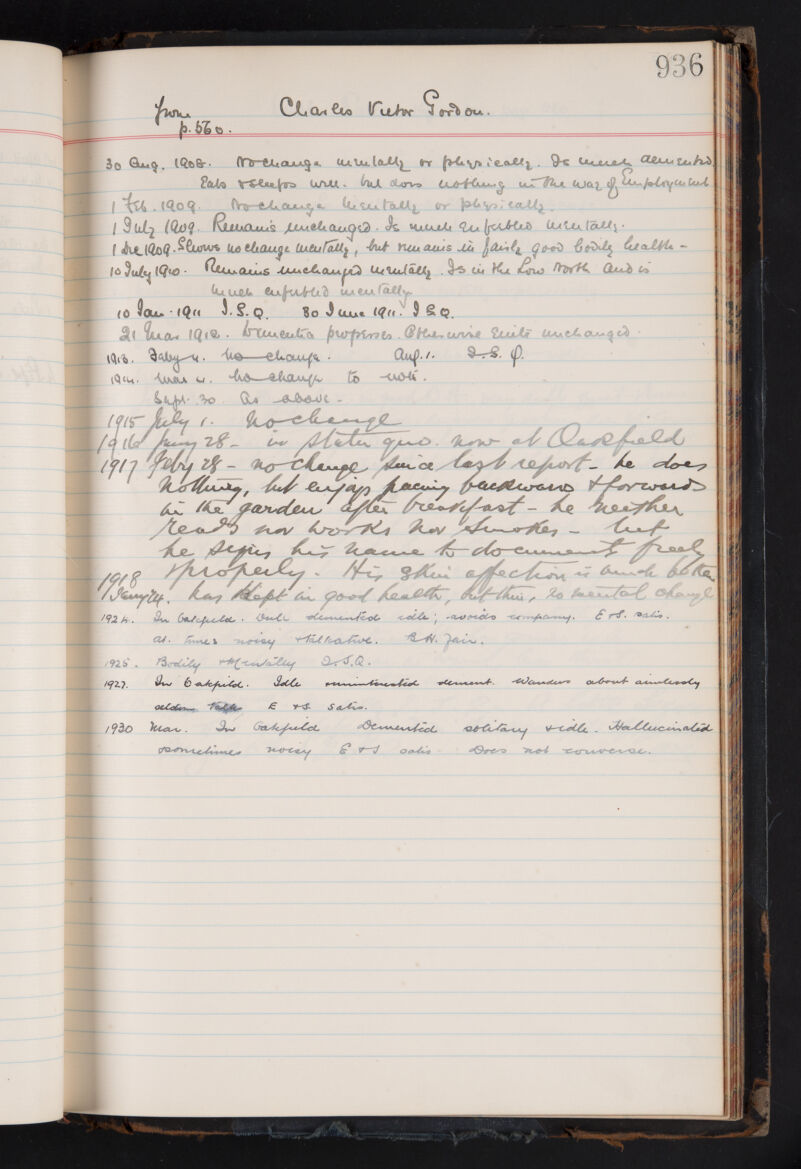 936
From Charles Victor Gordon.
p. 560.
30 Aug. 1908. No change mentally or physically. Is much demented
Eats & sleeps well. but does nothing in the way of Employment
1 Feb. 1909. No change mentally or physically.
1 July 1909. Remains unchanged. Is much enfeebled mentally.
1 Dec 1909. Shows no change mentally, but remains in fairly good bodily health -
10 July 1910. Remains unchanged mentally. Is in the Low North and is
much enfeebled mentally
10 Jan. 1911 I.S.Q. 30 June 1911. I S Q.
21 Mar 1912. Dementia progresses. Otherwise quite unchanged.
1913. Feby 4. No change. Aug. 1. I.S.Q.
1914. Mar 4. No change to note.
Sept. 30 As above.
1915 July 1. No change
1916 Jany 28 - in statu quo. now at Oakfield
1917 Feby 28 - no change since last report - he does
nothing, but enjoys pacing backwards & forwards
in the garden after breakfast - he neither
reads nor works nor smokes - but
he signs his name to documents freely
& properly. His skin affection is much better
1918
Jany 24. has kept in good health, but thin, no mental change
1924. In Oakfield. Dull demented idle; avoids company. E & S. satis.
at times noisy & talkative. B.H. fair.
1925. Bodily & Mentally I.S.Q.
1927. In Oakfield. Idle uninterested dement. Wanders about aimlessly
seldom talks E & S satis.
1930 Mar. In Oakfield Demented solitary & idle. Hallucinated
& sometimes noisy E & S satis Does not converse.